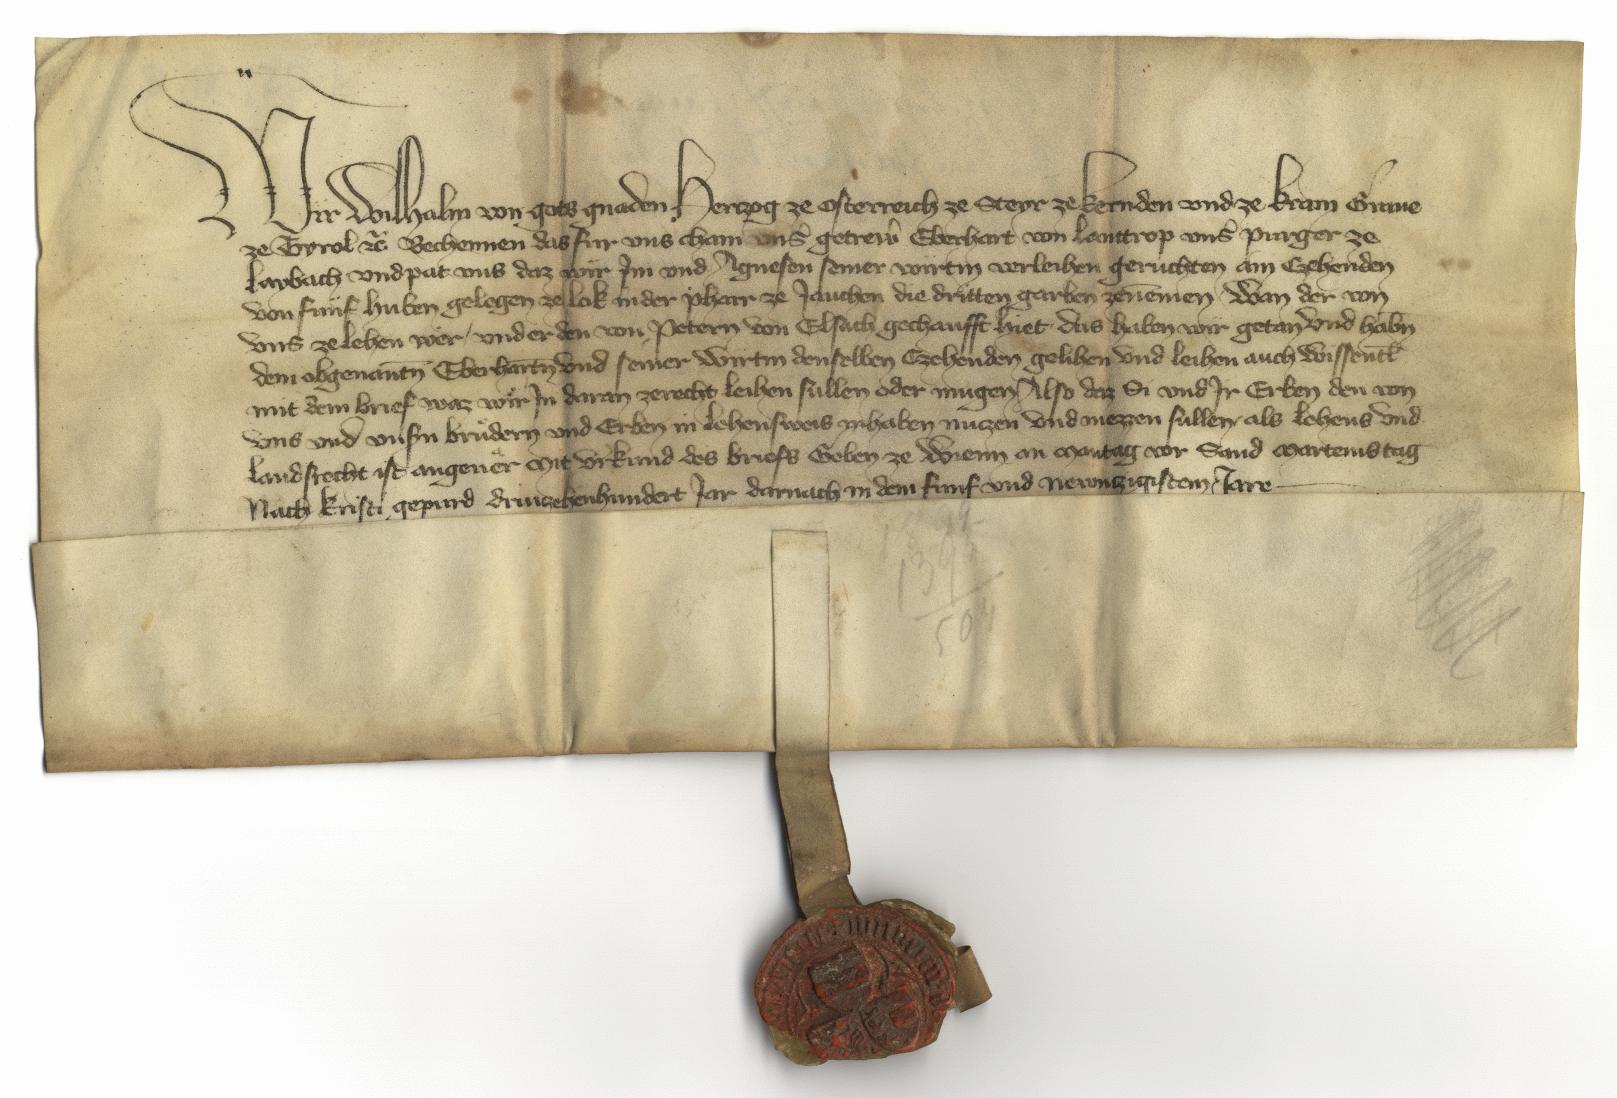 Wir Wilhalm von gots gnaden Hertzog ze Osterreich ze Steyr ze Kernden vnd ze Krain Graue
ze Tyrol etc Bechennen das fur vns cham vns͛ getrew͛ Eberhart von Lanttrop vns͛ purger ze
Laybach vnd pat vns daz wir Im vnd Agnesen seiner wirtin verleihen geruchten ain Czehenden
von fünf huben gelegen ze Lok in der phar ze Jauchen die dritten garben zenemen Wan der von
vns ze lehen wer / vnd er den von Petern von Elsach gechaufft hiet das haben wir getan vnd habn̄
dem obgenantn̄ Eberhartn̄ vnd seiner Wirtin denselben Czehenden gelihen vnd leihen auch wissentl̄
mit dem brief waz wir In daran zerecht leihen sullen oder mugen Also daz Si vnd Ir Erben den von
vns vnd vnsn̄ brüdern vnd Erben in lehensweis ynhaben nuczen vnd niezzen sullen als lehens vnd
landsrecht ist angeuer Mit vrkund des briefs Geben ze Wienn an Montag vor Sand Marteinstag
Nach Kristi gepurd dreuczehenhundert Jar darnach in dem funf vnd newnczigistem Jare
1395
504